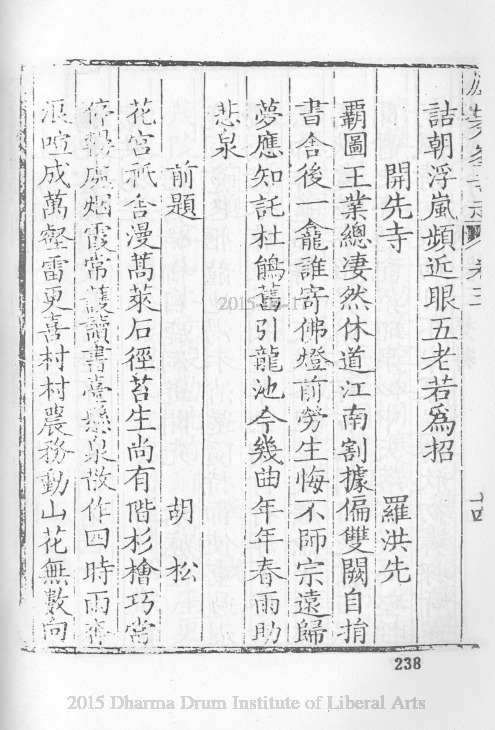 詰朝浮嵐頻近眼五老若為招
開先寺 羅洪先
霸圖王業總凄然休道江南割據偏雙闕自捐
書舍後一龕誰寄佛燈前勞生悔不師宗遠歸
夢應知託杜鵑舊引龍池今幾曲年年春雨助
悲泉
前題 胡松
花宮祇舍漫蒿萊石徑苔生尚有階杉檜巧當
停處烟霞常護讀書臺懸泉散作四時雨
成萬壑雷更喜村村農務動山花無數向
卷三
十四
238
2015 Dharma Drum Institute of Liberal Arts